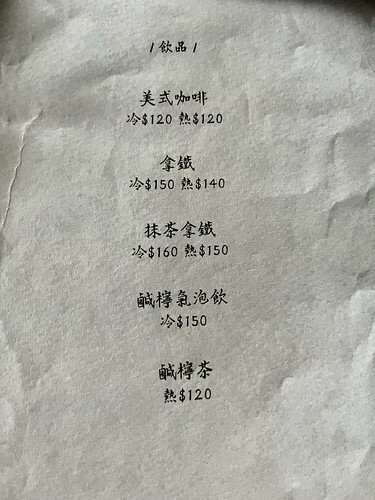 /飲品/
美式咖啡
冷$120 熱$120
拿鐵
冷$150 熱$140
抹茶拿鐵
冷$160 熱$150
鹹檸氣泡飲
冷$150
鹹檸茶
熱$120